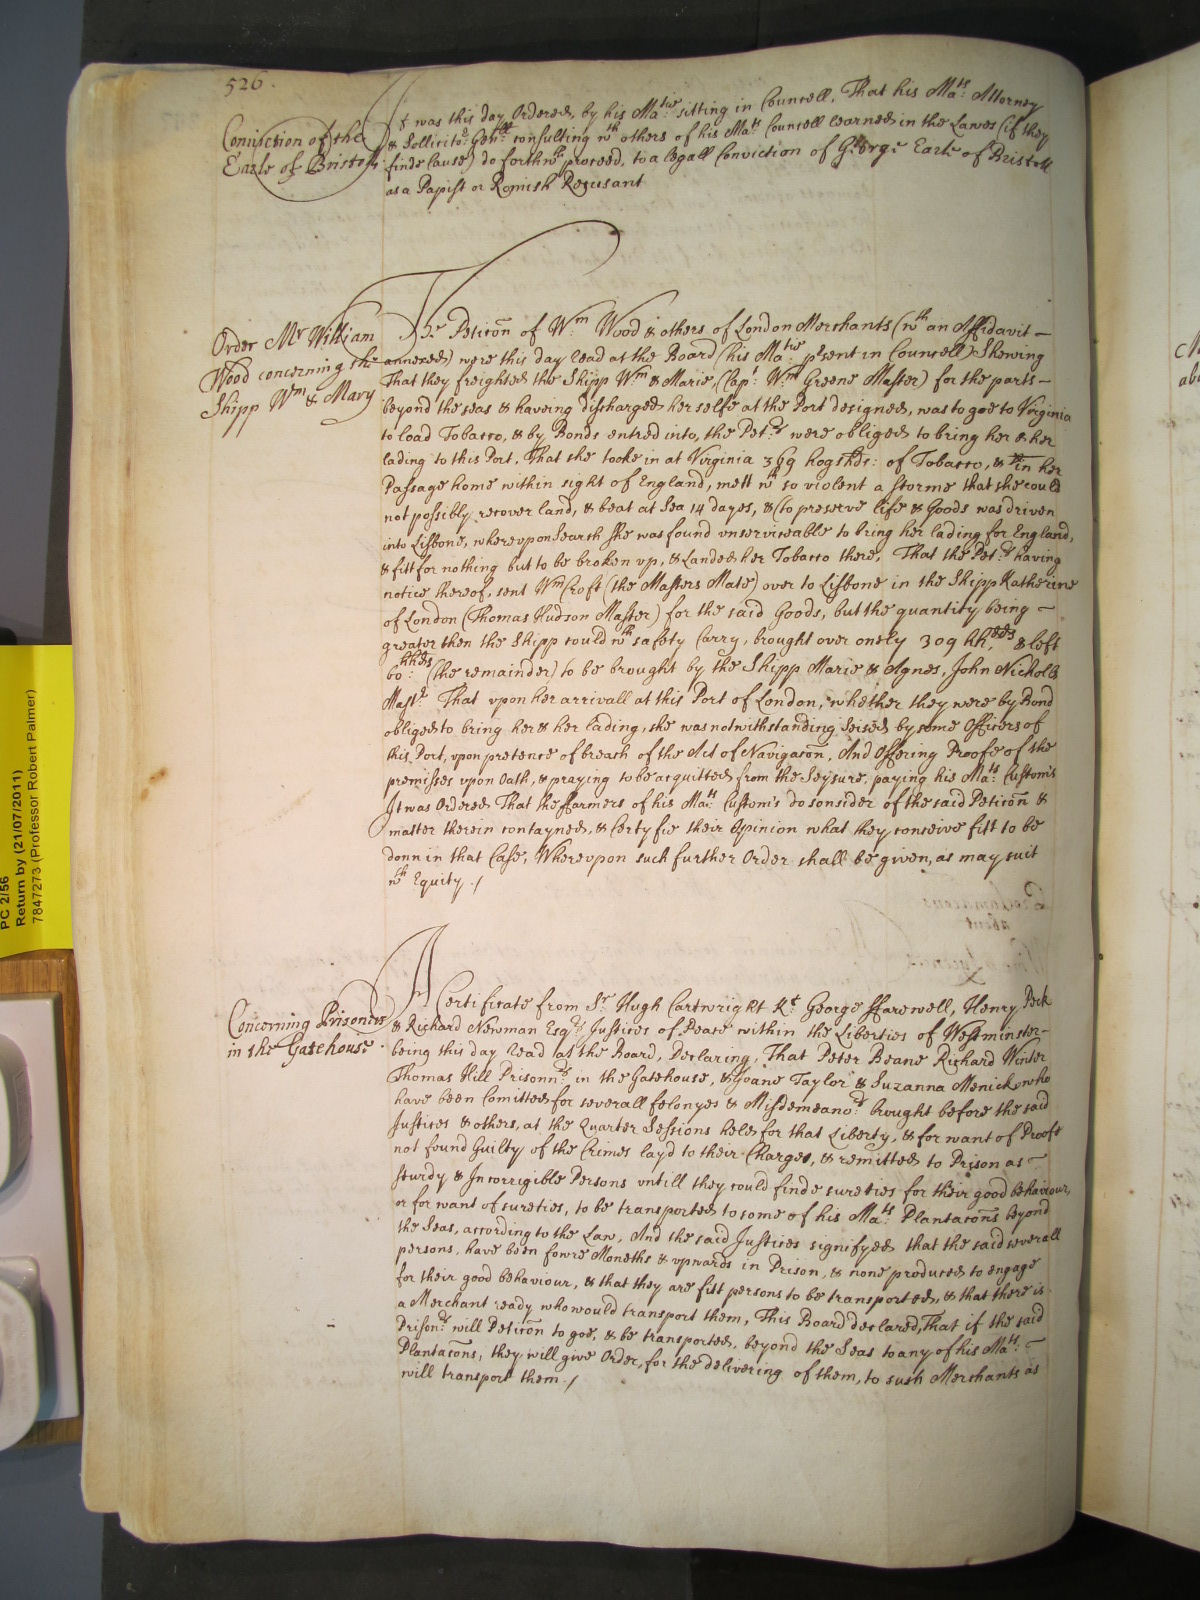 526.
Conviction of the
Earle of Bristoll.
It was this day Ordered, by his Ma:tie sitting in Councell, That his Ma:ts Attorney
& Sollicito:r Gen:ll consulting wth others of his Ma:ts Councell learned in the Lawes (if they
finde Cause) do forthwth proceed, to a legall Conviction of George Earle of Bristoll
as a Papist or Romish Recusant
Order Mr William
Wood concerning the
Shipp Wm & Mary
The Peticõn of Wm Wood & others of London Merchants (wth an Affidavit –
annexed) were this day read at the Board (his Ma:tie p̄sent in Councell) Shewing
That they freighted the Shipp Wm & Marie, (Cap:t Wm Greene Master) for the parts –
beyond the seas & haveing discharged her selfe at the Port designed, was to goe to Virginia
to load Tobacco, & by Bonds entred into, the Pet:rs were obliged to bring her & her
lading to this Port, That she tooke in at Virginia 369 hogshds: of Tobacco, & in her
Passage home within sight of England, mett wth so violent a storme that she could
not possibly recover land, & beat at Sea 14 dayes, & (to preserve life & Goods was driven
into Lisbone, where upon Search She was found vnserviceable to bring her lading for England,
& fitt for nothing but to be broken vp, & Landed her Tobacco there, That the Pet:rs having
notice thereof, sent Wm Croft (the Masters Mate) over to Lisbone in the Shipp Katherine
of London (Thomas Hudson Master) for the said Goods, but the quantity being –
greater then the Shipp could wth safety Carry, brought over onely 309 hh:eds & left
60: hheds (the remainder) to be brought by the Shipp Marie & Agnes, John Nicholls
Mast:r That vpon her arrivall at this Port of London, whether they were by Bond
obliged to bring her & her lading, she was notwithstanding Seised by some Officers of
this Port, vpon pretence of breach of the Act of Navigacõn, And Offering Proofe of the
premisses vpon Oath, & praying to be acquitted from the Seysure, paying his Ma:ts Custom's
It was Ordered That the ffarmers of his Ma:ts Custom's do consider of the said Peticõn &
matter therein contayned, & Certyfie their Opinion what they conceive fitt to be
donn in that Case, Wherevpon such further Order shall be given, as may suit
wth Equity ./
Concerning Prisoners
in the Gatehouse.
A Certificate from Sr Hugh Cartwright Kt George ffarewell, Henry Peck
& Richard Newman Esqrs Justices of Peace within the Liberties of Westminster –
being this day read at the Board, Declaring, That Peter Beane Richard Winter
Thomas Hill Prisonn:rs in the Gatehouse, & Joane Taylor & Suzanna Menick, who
have been Comitted for severall felonyes & Misdemeano:rs brought before the said
Justices & others, at the Quarter Sessions held for that Liberty, & for want of Proofe
not found Guilty of the Crimes layd to their Charges, & remitted to Prison as –
Sturdy & Incorrigible Persons vntill they could finde sureties for their good behaviour,
or for want of sureties, to be transported to some of his Ma:ts Plantacõns beyond
the Seas, according to the Law, And the said Justices signifyed that the said severall
persons, have been fowre Moneths & vpwards in Prison, & none produced to engage
for their good behaviour, & that they are fitt persons to be transported, & that there is
a Merchant ready who would transport them, This Board declared, That if the said
Prison:rs will Peticõn to goe, & be transported, beyond the Seas to any of his Ma:ts –
Plantacõns, they will give Order, for the delivering of them, to such Merchants as
will transport them ./
PC 2/56
Return by (21/07/2011)
7847273 (Professor Robert Palmer)